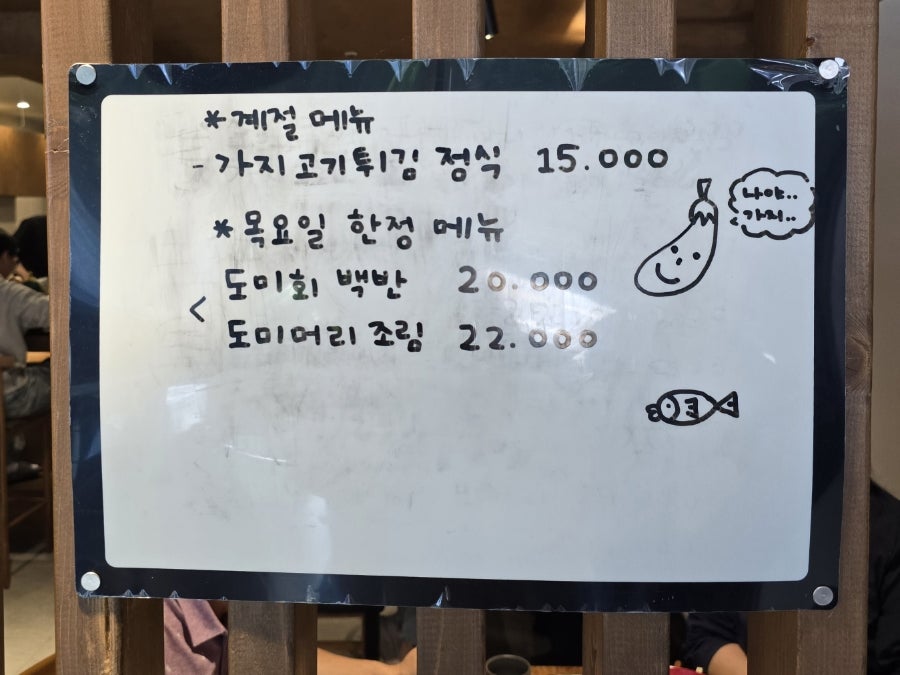 *계절 메뉴
- 가지고기튀김 정식 15.000
나야..
가지..
*목요일 한정 메뉴
< 도미회 백반 20.000
도미머리 조림 22.000